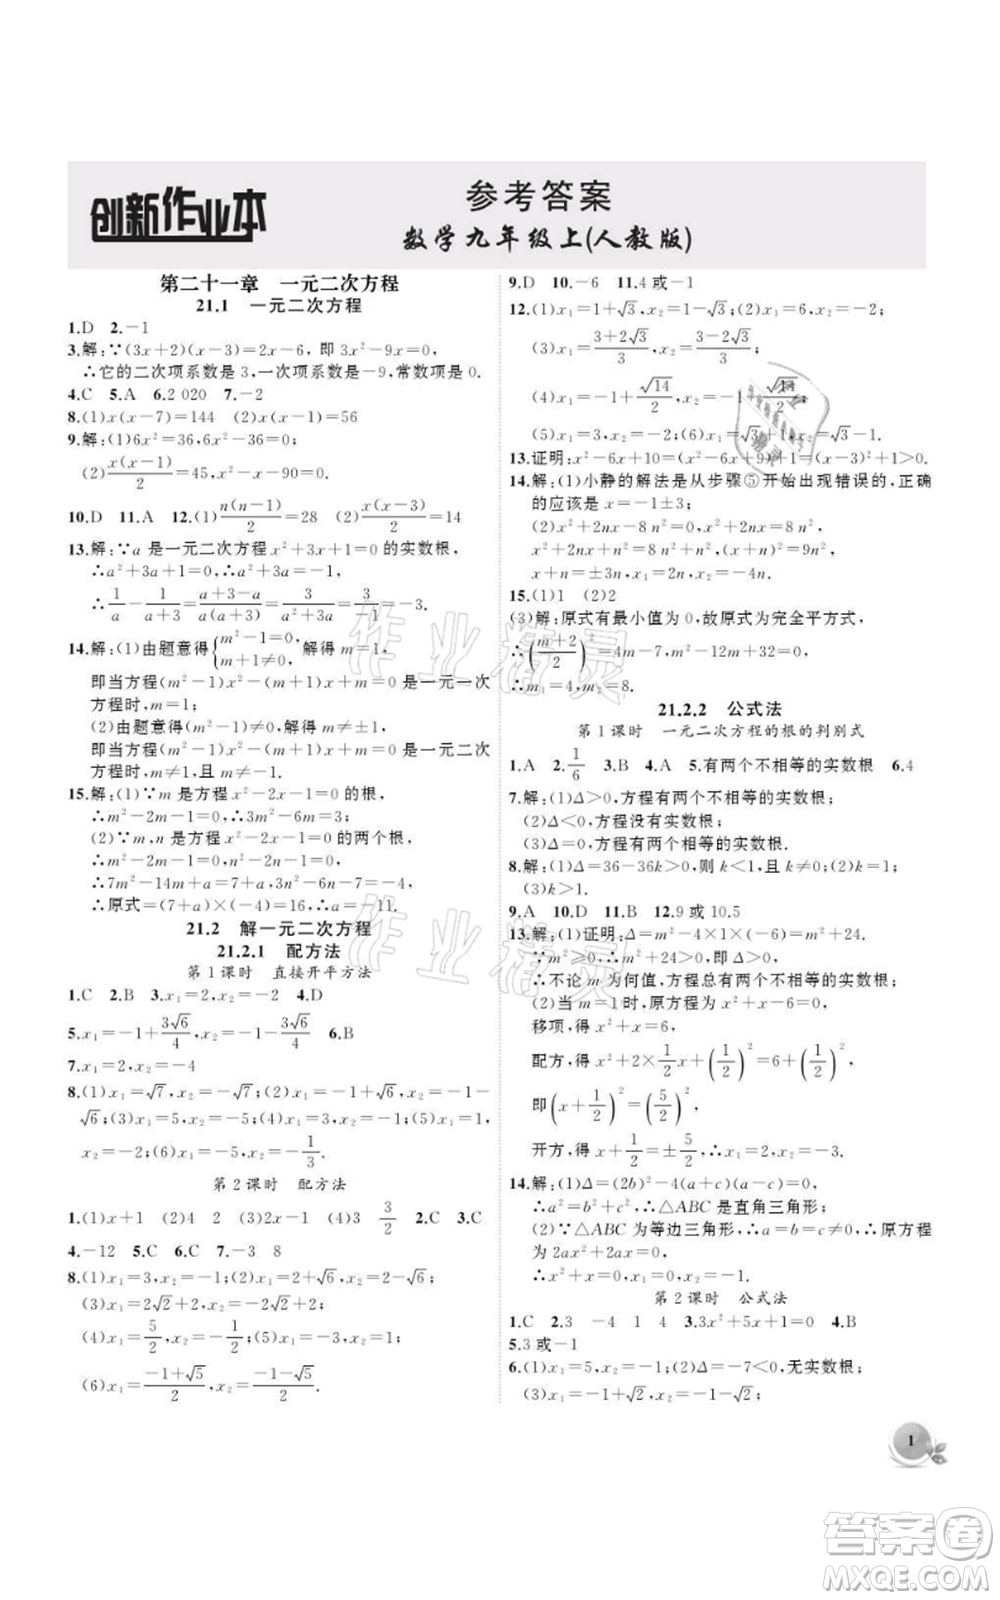 创新作业本
参考答案
数学九年级上(人教版)
第二十一章　一元二次方程
21.1　一元二次方程
1.D　2.－1
3.解:∵(3x＋2)(x－3)＝2x－6, 即 3x²－9x＝0,
∴它的二次项系数是 3,一次项系数是－9,常数项是 0.
4.C　5.A　6.2 020　7.－2
8.(1)x(x－7)＝144　(2)x(x－1)＝56
9.解:(1)6x²＝36,6x²－36＝0.
(2)x(x－1)/2＝45,x²－x－90＝0.
10.D　11.A　12.(1)n(n－1)/2＝28　(2)x(x－3)/2＝14
13.解:∵a 是一元二次方程 x²＋3x＋1＝0 的实数根,
∴a²＋3a＋1＝0,∴a²＋3a＝－1,
∴1/a－1/(a＋3)＝(a＋3－a)/(a(a＋3))＝3/(a²＋3a)＝3/(－1)＝－3.
14.解:(1)由题意得{m²－1＝0, m＋1≠0, 解得 m＝1,
即当方程(m²－1)x²－(m＋1)x＋m＝0 是一元一次
方程时,m＝1;
(2)由题意得(m²－1)≠0,解得 m≠±1,
即当方程(m²－1)x²－(m＋1)x＋m＝0 是一元二次
方程时,m≠1,且 m≠－1.
15.解:(1)∵m 是方程 x²－x－2＝0 的根,
∴m²－m－2＝0,∴m²－m＝2;
(2)∵m,n 是方程 x²－2x－1＝0 的两个根,
∴m²－2m－1＝0,n²－2n－1＝0,
∴7m²－14m＋a＝7＋a,3n²－6n－7＝－4,
∴原式＝(7＋a)×(－4)＝8,∴a＝－9.
21.2　解一元二次方程
21.2.1　配方法
第 1 课时　直接开平方法
1.C　2.B　3.x₁＝2,x₂＝－2　4.D
5.x₁＝－1＋3√6/4,x₂＝－1－3√6/4　6.B
7.x₁＝2,x₂＝－4
8.(1)x₁＝√7,x₂＝－√7;(2)x₁＝－1＋√6,x₂＝－1－
√6;(3)x₁＝5,x₂＝－1;(4)x₁＝5,x₂＝－1;(5)x₁＝1,
x₂＝－2;(6)x₁＝－5,x₂＝－1/3.
第 2 课时　配方法
1.(1)x＋1　(2)4　2　(3)2x－1　(4)3　3/2　2.C　3.C
4.－12　5.C　6.C　7.－3　8
8.(1)x₁＝3,x₂＝－1;(2)x₁＝2＋√6,x₂＝2－√6;
(3)x₁＝2√2＋2,x₂＝2√2－2;
(4)x₁＝5/2,x₂＝－1/2;(5)x₁＝x₂＝1;
(6)x₁＝(－1＋√5)/2,x₂＝(－1－√5)/2.
9.D　10.－6　11.4 或－1
12.(1)x₁＝1＋√3,x₂＝1－√3;(2)x₁＝6,x₂＝－2;
(3)x₁＝(3＋2√3)/3,x₂＝(3－2√3)/3;
(4)x₁＝－1＋√14/2,x₂＝－1－√14/2;
(5)x₁＝3,x₂＝2;(6)x₁＝√3＋1,x₂＝√3－1.
13.证明:x²－6x＋10＝(x²－6x＋9)＋1＝(x－3)²＋1>0.
14.解:(1)小静的解法是从步骤⑤开始出现错误的,正确
的应该是 x＝－1±3;
(2)x²＋2nx－8 n²＝0,x²＋2nx＝8 n²,
x²＋2nx＋n²＝8 n²＋n²,(x＋n)²＝9n²,
x＋n＝±3n,x₁＝2n,x₂＝－4n.
15.(1)1　(2)2
(3)解:原式有最小值为 0,故原式为完全平方式,
∴((m＋2)/2)²＝4m－7,m²－12m＋32＝0,
∴m₁＝4,m₂＝8.
21.2.2　公式法
第 1 课时　一元二次方程的根的判别式
1.A　2.1/6　3.B　4.A　5.有两个不相等的实数根　6.4
7.解:(1)Δ>0,方程有两个不相等的实数根;
(2)Δ<0,方程没有实数根;
(3)Δ＝0,方程有两个相等的实数根.
8.解:(1)Δ＝36－36k>0,则 k<1,且 k≠0;(2)k＝1;
(3)k>1.
9.A　10.D　11.B　12.9 或 10.5
13.解:(1)证明:Δ＝m²－4×1×(－6)＝m²＋24.
∵m²≥0,∴m²＋24>0,即Δ>0,
∴不论 m 为何值,方程总有两个不相等的实数根;
(2)当 m＝1时,原方程为 x²＋x－6＝0,
移项,得 x²＋x＝6,
配方,得 x²＋2×1/2x＋(1/2)²＝6＋(1/2)²,
即(x＋1/2)²＝(5/2)²,
开方,得 x＋1/2＝±5/2,∴x₁＝2,x₂＝－3.
14.解:(1)Δ＝(2b)²－4(a＋c)(a－c)＝0,
∴a²＝b²＋c²,∴△ABC 是直角三角形;
(2)∵△ABC 为等边三角形,∴a＝b＝c≠0,原方程
为 2ax²＋2ax＝0.
∴x²＋x＝0,∴x₁＝0,x₂＝－1.
第 2 课时　公式法
1.C　2.3　－4　1　4　3.3x²＋5x＋1＝0　4.B
5.3 或－1
6.(1)x₁＝5,x₂＝－1;(2)Δ＝－7<0,无实数根;
(3)x₁＝－1＋√2,x₂＝－1－√2;
1
作业精灵
作业精灵
答案卷
MXQE.COM